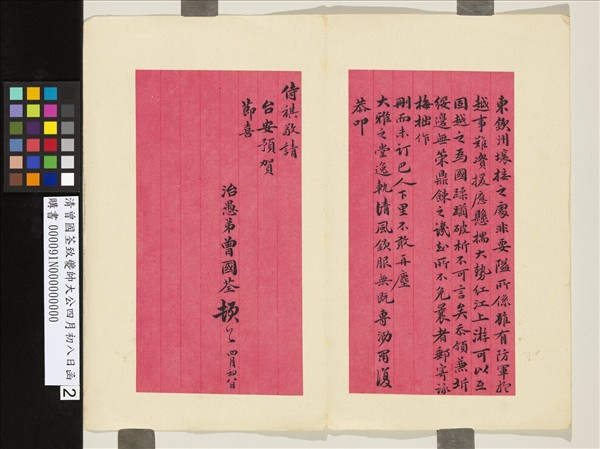 東欽州壤接之處非要隘所係雖有防軍於
越事難資援應懸揣大勢紅江上游可以立
國越之為國蹂躪破析不可言矣忝領兼圻
綏邊無策鼎餗之譏知所不免曩者郵寄詠
梅拙作
刪而未訂巴人下里不敢再塵
大雅之堂逸軌清風欽服無既專泐布復
恭叩
侍祺敬請
台安預賀
節喜
治愚弟曾國荃頓 四月初八日
清曾國荃致燮帥大公四月初八日函
購書 000091N000000000
2